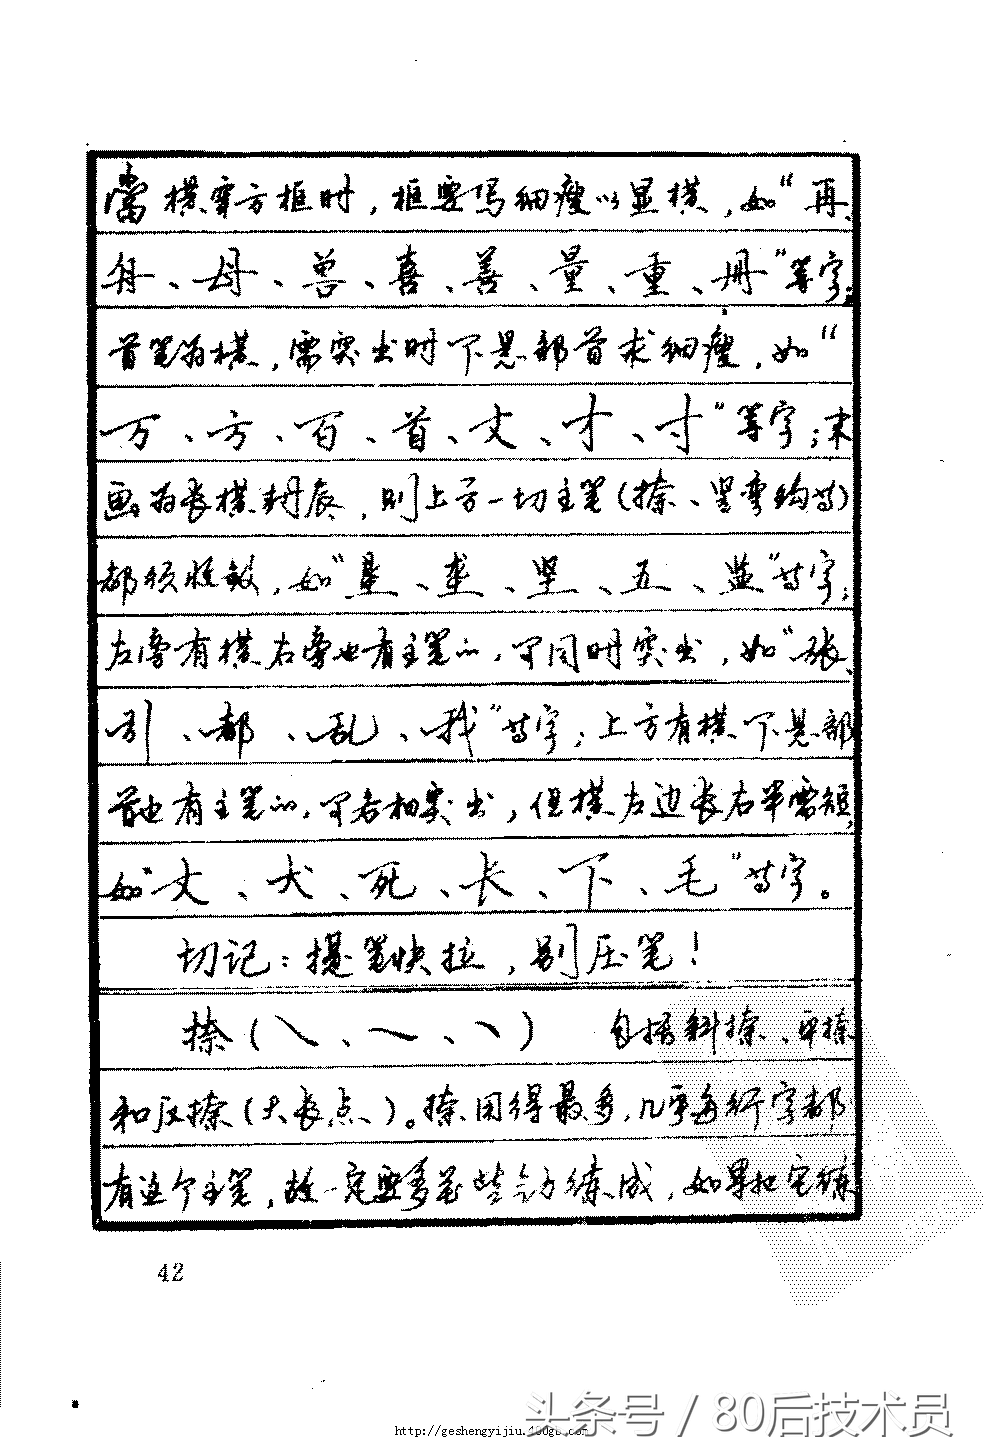 当横穿方框时，框要写细瘦以显横，如“再、
舟、母、兽、喜、善、量、重、冊”等字；
首笔为横，需突出时下是部首求细瘦，如“
万、方、百、首、丈、才、寸”等字；末
画为长横封底，则上方一切主笔（捺、竖弯钩等）
都须收敛，如“是、垄、坚、五、盐”等字；
左旁有横右旁也有主笔的，可同时突出，如“张、
引、都、乱、我”等字；上方有横下是部
首也有主笔的，可各相突出，但横左边长右半需短，
如“丈、犬、死、长、下、毛”等字。
切记：提笔快拉，别压笔！
捺（㇏、乀、丶）　包括斜捺、平捺
和反捺（大长点）。捺用得最多，几乎每行字都
有这个主笔，故一定要多花些功练成，如果把它练
42
头条号 / 80后技术员